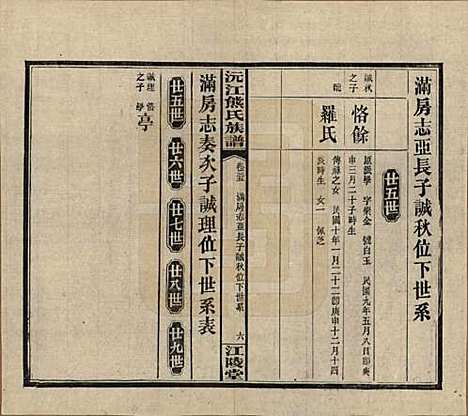 滿房志亞長子誠秋位下世系
廿五世
誠秋之子
恪餘
原派學 字榮金 號自玉 民國九年五月八日卽庚
申三月二十子時生
羅氏
傳祿之女 民國十年一月二十二卽庚申十二月十四
辰時生 女一 佩芝
沅江熊氏族譜
卷三五 滿房志亞長子誠秋位下世系
六
江陵堂
滿房志奏次子誠理位下世系表
廿五世
廿六世
廿七世
廿八世
廿九世
誠理之子
學亭